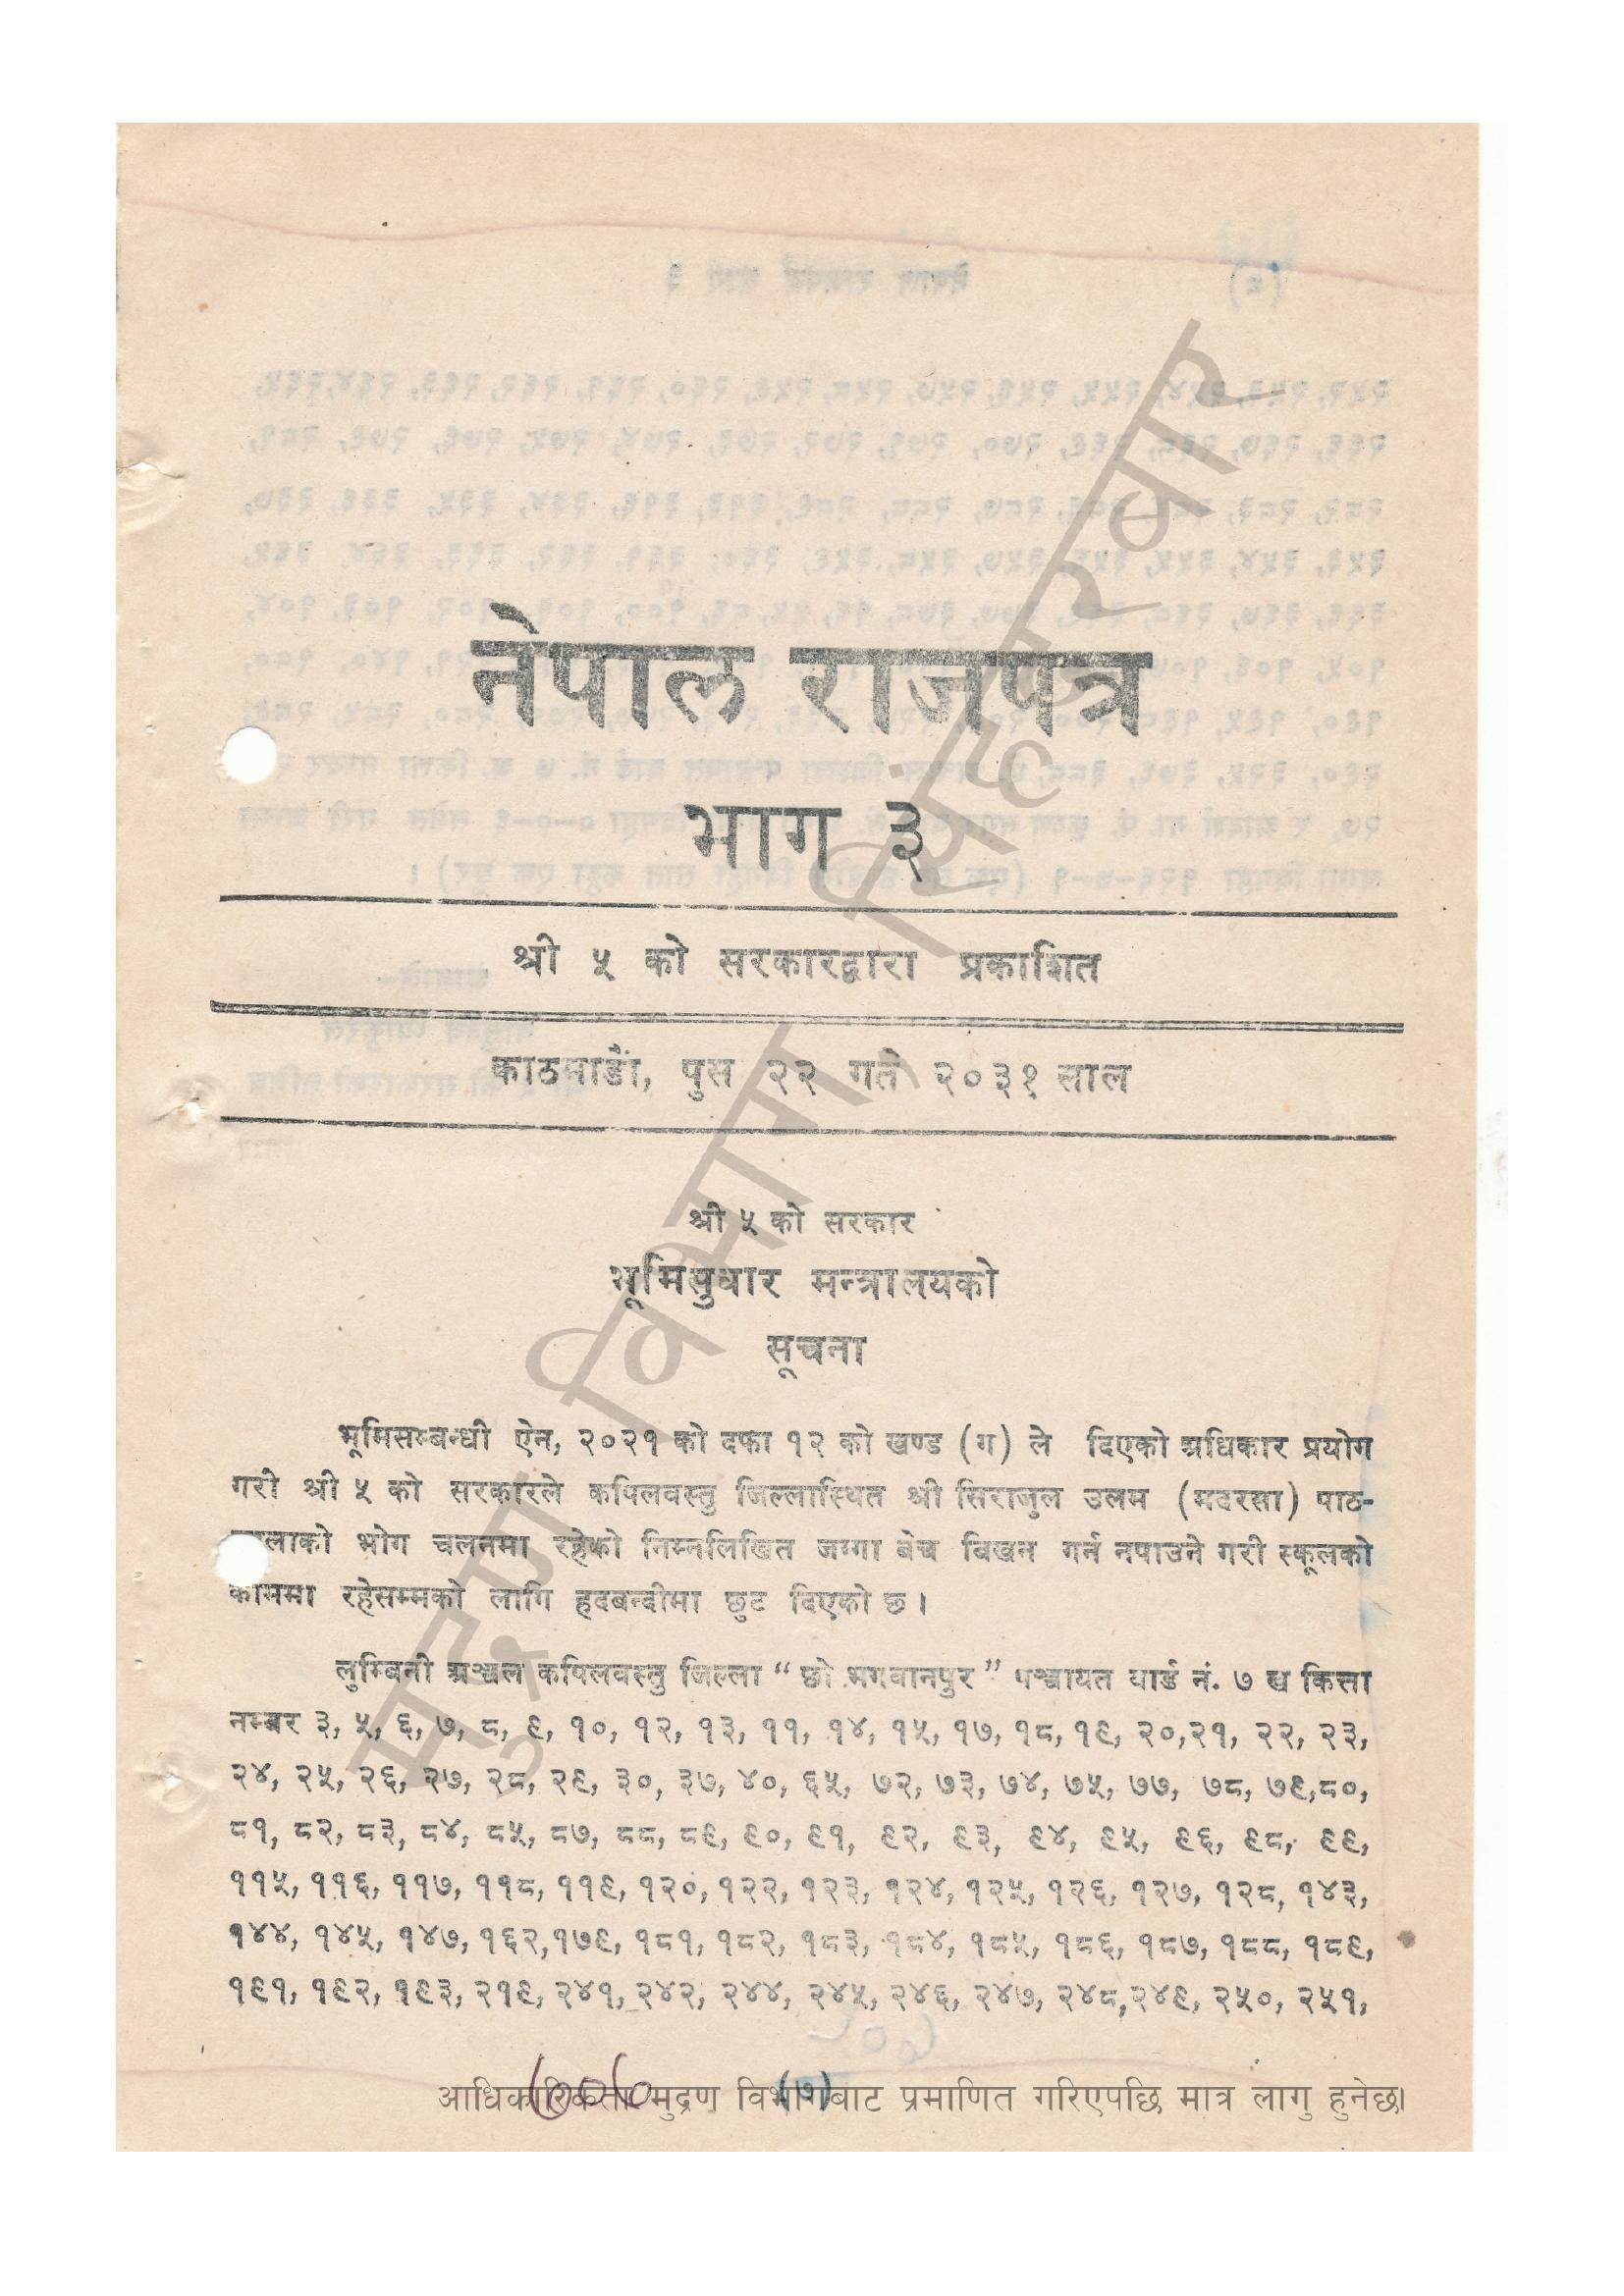 नेपाल राजपत्र
भाग ३
श्री ५ को सरकारद्वारा प्रकाशित
काठमाडौं, पुस २२ गते २०३१ साल
श्री ५ को सरकार
भूमिसुधार मन्त्रालयको
सूचना
भूमिसम्बन्धी ऐन, २०२१ को दफा १२ को खण्ड (ग) ले दिएको अधिकार प्रयोग
गरी श्री ५ को सरकारले कपिलवस्तु जिल्लास्थित श्री सिराजुल उलम (मदरसा) पाठ-
लाको भोग चलनमा रहेको निम्नलिखित जग्गा बेच बिखन गर्न नपाउने गरी स्कूलको
काममा रहेसम्मको लागि हदबन्दीमा छुट दिएको छ ।
लुम्बिनी अञ्चल कपिलवस्तु जिल्ला “ छो भगवानपुर ” पञ्चायत वार्ड नं. ७ ख कित्ता
नम्बर ३, ५, ६, ७, ८, ९, १०, १२, १३, ११, १४, १५, १७, १८, १९, २०,२१, २२, २३,
२४, २५, २६, २७, २८, २९, ३०, ३७, ४०, ६५, ७२, ७३, ७४, ७५, ७७, ७८, ७९,८०,
८१, ८२, ८३, ८४, ८५, ८७, ८८, ८९, ९०, ९१, ९२, ९३, ९४, ९५, ९६, ९८, ९९,
११५, ११६, ११७, ११८, ११९, १२०, १२२, १२३, १२४, १२५, १२६, १२७, १२८, १४३,
१४४, १४५, १४७, १६२,१७९, १८१, १८२, १८३, १८४, १८५, १८६, १८७, १८८, १८९,
१९१, १९२, १९३, २१९, २४१, २४२, २४४, २४५, २४६, २४७, २४८,२४९, २५०, २५१,
(७)
आधिकारिकता मुद्रण विभागबाट प्रमाणित गरिएपछि मात्र लागु हुनेछ।
मुद्रण विभाग, सिंहदरबार